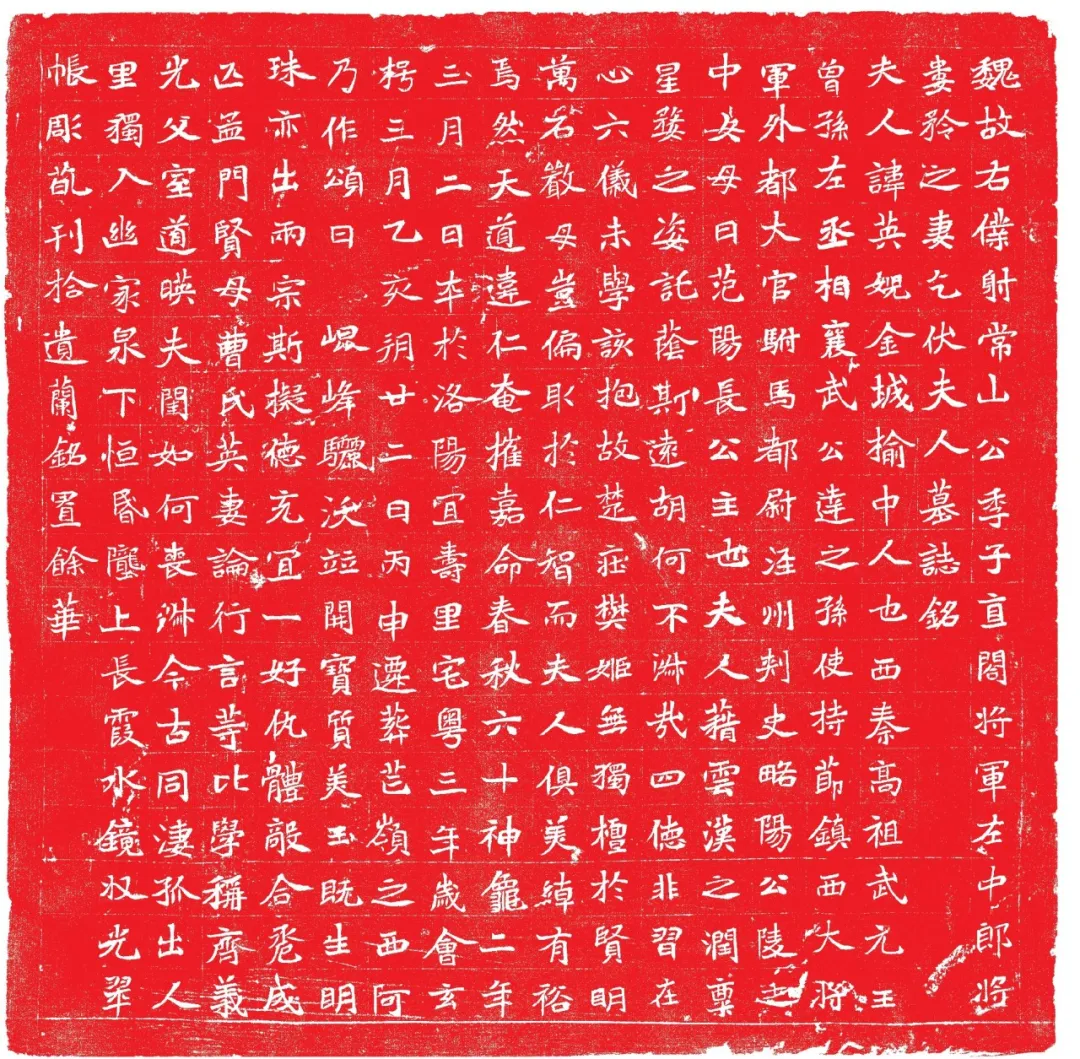 魏故右僕射常山公季子直閤将軍左中郎将
婁矜之妻乞伏夫人墓誌銘
夫人諱英娥金城揄中人也西秦髙祖武元王
曾孫左丞相襄武公達之孫使持莭鎮西大將
軍外都大官駙馬都尉涇州刺史略陽公陵之
中女母曰范陽長公主也夫人藉雲漢之潤稟
星婺之姿託蔭斯遠胡何不淋㦲四德非習在
心六儀未學該抱故楚莊樊姬無獨檀於賢明
萬石嚴母豈偏取於仁智而夫人俱美綽有裕
焉然天道違仁奄摧嘉命春秋六十神龜二年
三月二日卒於洛陽宜壽里宅粤三年歲會玄
枵三月乙亥朔廿二日丙申遷葬芒嶺之西阿
乃作頌曰 崐峰驪沃竝開寶質美玉既生明
珠亦出兩宗斯擬德充宜一好仇體敵合巹成
匹孟門賢母曹氏英妻論行言荨比學稱齊義
光父室道暎夫閨如何喪淋今古同淒孤出人
里獨入幽家泉下恒昏壟上長霞水鏡收光翠
帳彫苽刊拾遺蘭銘置餘華